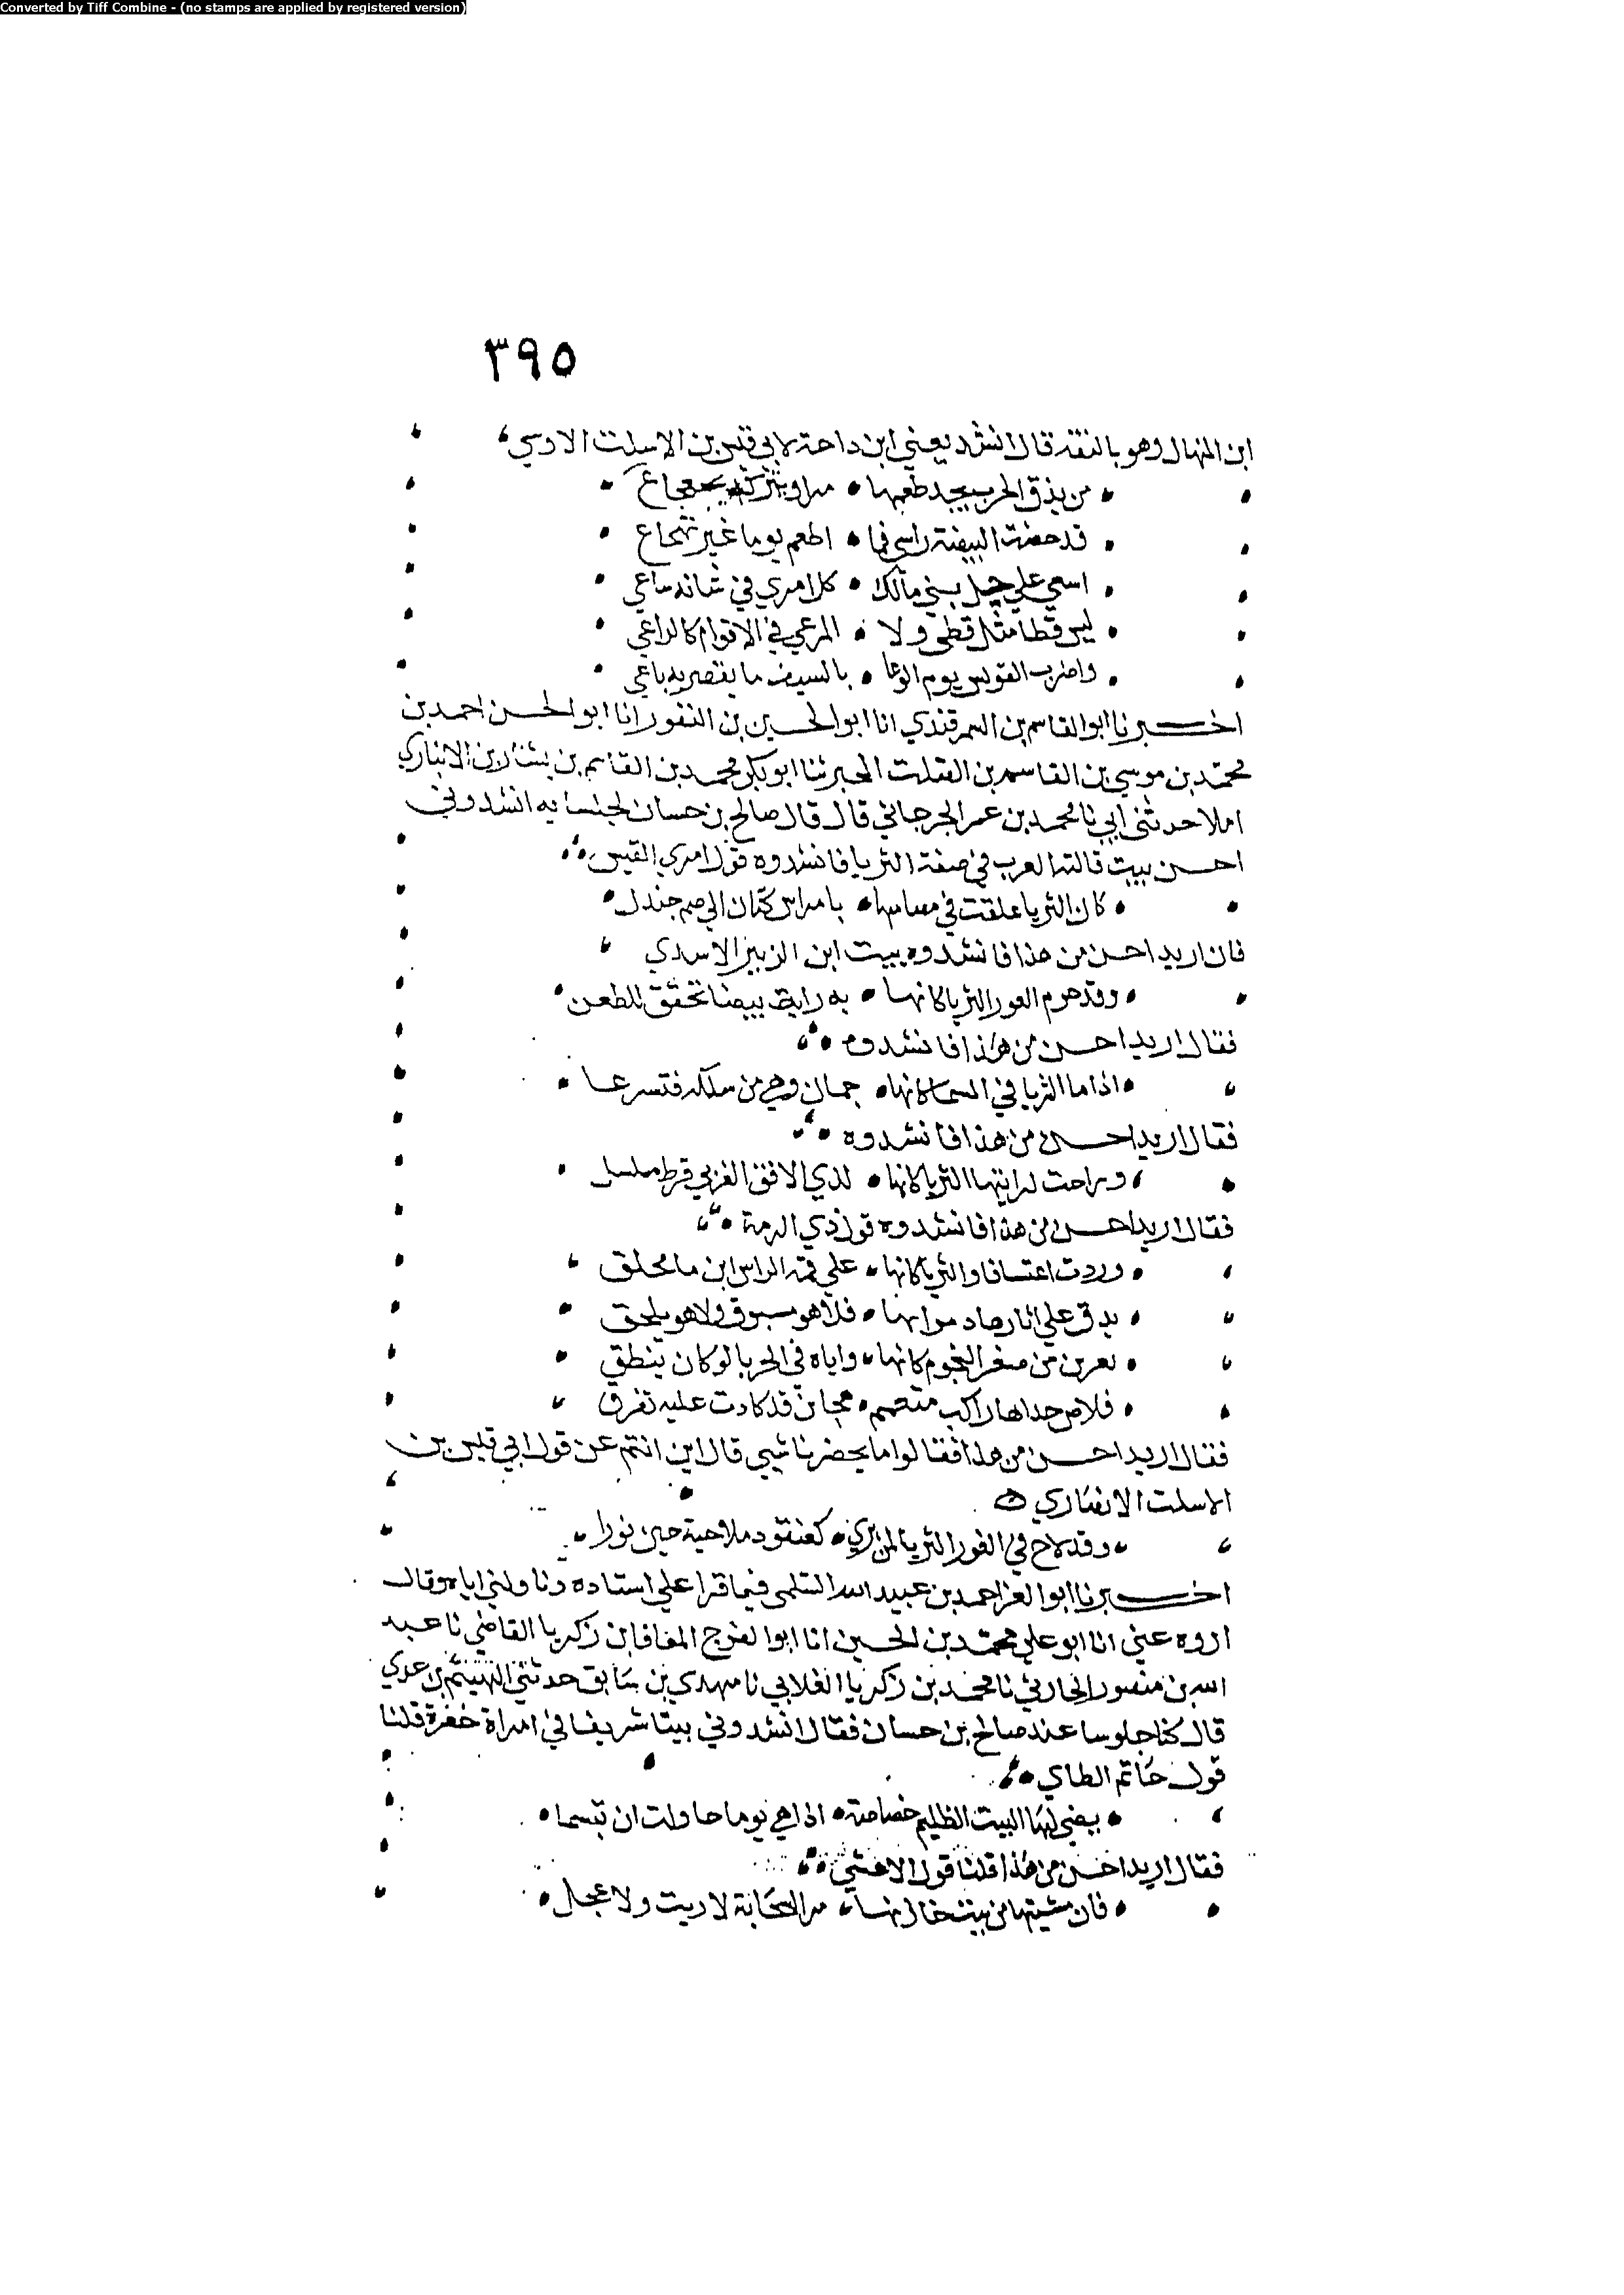 Converted by Tiff Combine - (no stamps are applied by registered version)
٣٩٥
ابن المنهال وهو بالنقد قال انشد يعني ابن داحة لابي قيس بن الاسلت الاوسي
من يذق الحرب يجد طعمها مرا وتتركه بجعجاع
قد حصت البيضة راسي فما اطعم يوما غير تهجاع
اسعي علي جل بني مالك كل امري في شانه ساعي
ليس قطا مثل قطي ولا المرعي في الاقوام كالراعي
واضرب القونس يوم الوغا بالسيف ما يقصر به باعي
اخبرنا ابو القاسم بن السمرقندي انا ابو الحسين بن النقور انا ابو الحسن احمد بن
محمد بن موسي بن القاسم بن الصلت المجبر نا ابو بكر محمد بن القاسم بن بشار بن الانباري
املا حدثني ابي نا محمد بن عمر الجرجاني قال قال صالح بن حسان لجلسايه انشدوني
احسن بيت قالته العرب في صفة الثريا فانشدوه قول امري القيس
كان الثريا علقت في مصامها بامراس كتان الي صم جندل
قال اريد احسن من هذا فانشدوه بيت ابن الزبير الاسدي
وقد حرم الغور الثريا كانها به راية بيضا تخفق للطعن
فقال اريد احسن من هذا فانشدوه
اذا ما الثريا في السما كانها جمان وهي من سلكه فتسرعا
فقال اريد احسن من هذا فانشدوه
وراحت لراتيها الثريا كانها لدي الافق الغربي قرط مسلسل
فقال اريد احسن من هذا فانشدوه قول ذي الرمة
وردت اعتسافا والثريا كانها علي قمة الراس ابن ما محلق
يدق علي اثارها دبرانها فلا هو مسبوق ولا هو يلحق
بعشرين من صغر النجوم كانها واياه في الحربا لو كان ينطق
قلاص حداها راكب متعمم هجان قد كادت عليه تفرق
فقال اريد احسن من هذا فقالوا ما يحضرنا شي قال اين انتم عن قول ابي قيس بن
الاسلت الانصاري
وقد لاح في الغور الثريا لمن يري كعنقود ملاحية حين نورا
اخبرنا ابو العز احمد بن عبيد الله السلمي فيما قرا علي اسناده وناولني اياه وقال
اروه عني انا ابو علي محمد بن الحسين انا ابو الفرج المعافا بن زكريا القاضي نا عبد
الله بن منصور الحارثي نا محمد بن زكريا الغلابي نا مهدي بن سابق حدثني الهيثم بن عدي
قال كنا جلوسا عند صالح بن حسان فقال انشدوني بيتا شريفا في امراة خفرة قلنا
قول حاتم الطاي
يضي لها البيت الظليم خصاصة اذا هي يوما حاولت ان تبسما
فقال اريد احسن من هذا قلنا قول الاعشي
كان مشيتها من بيت جارتها مر السحابة لا ريث ولا عجل